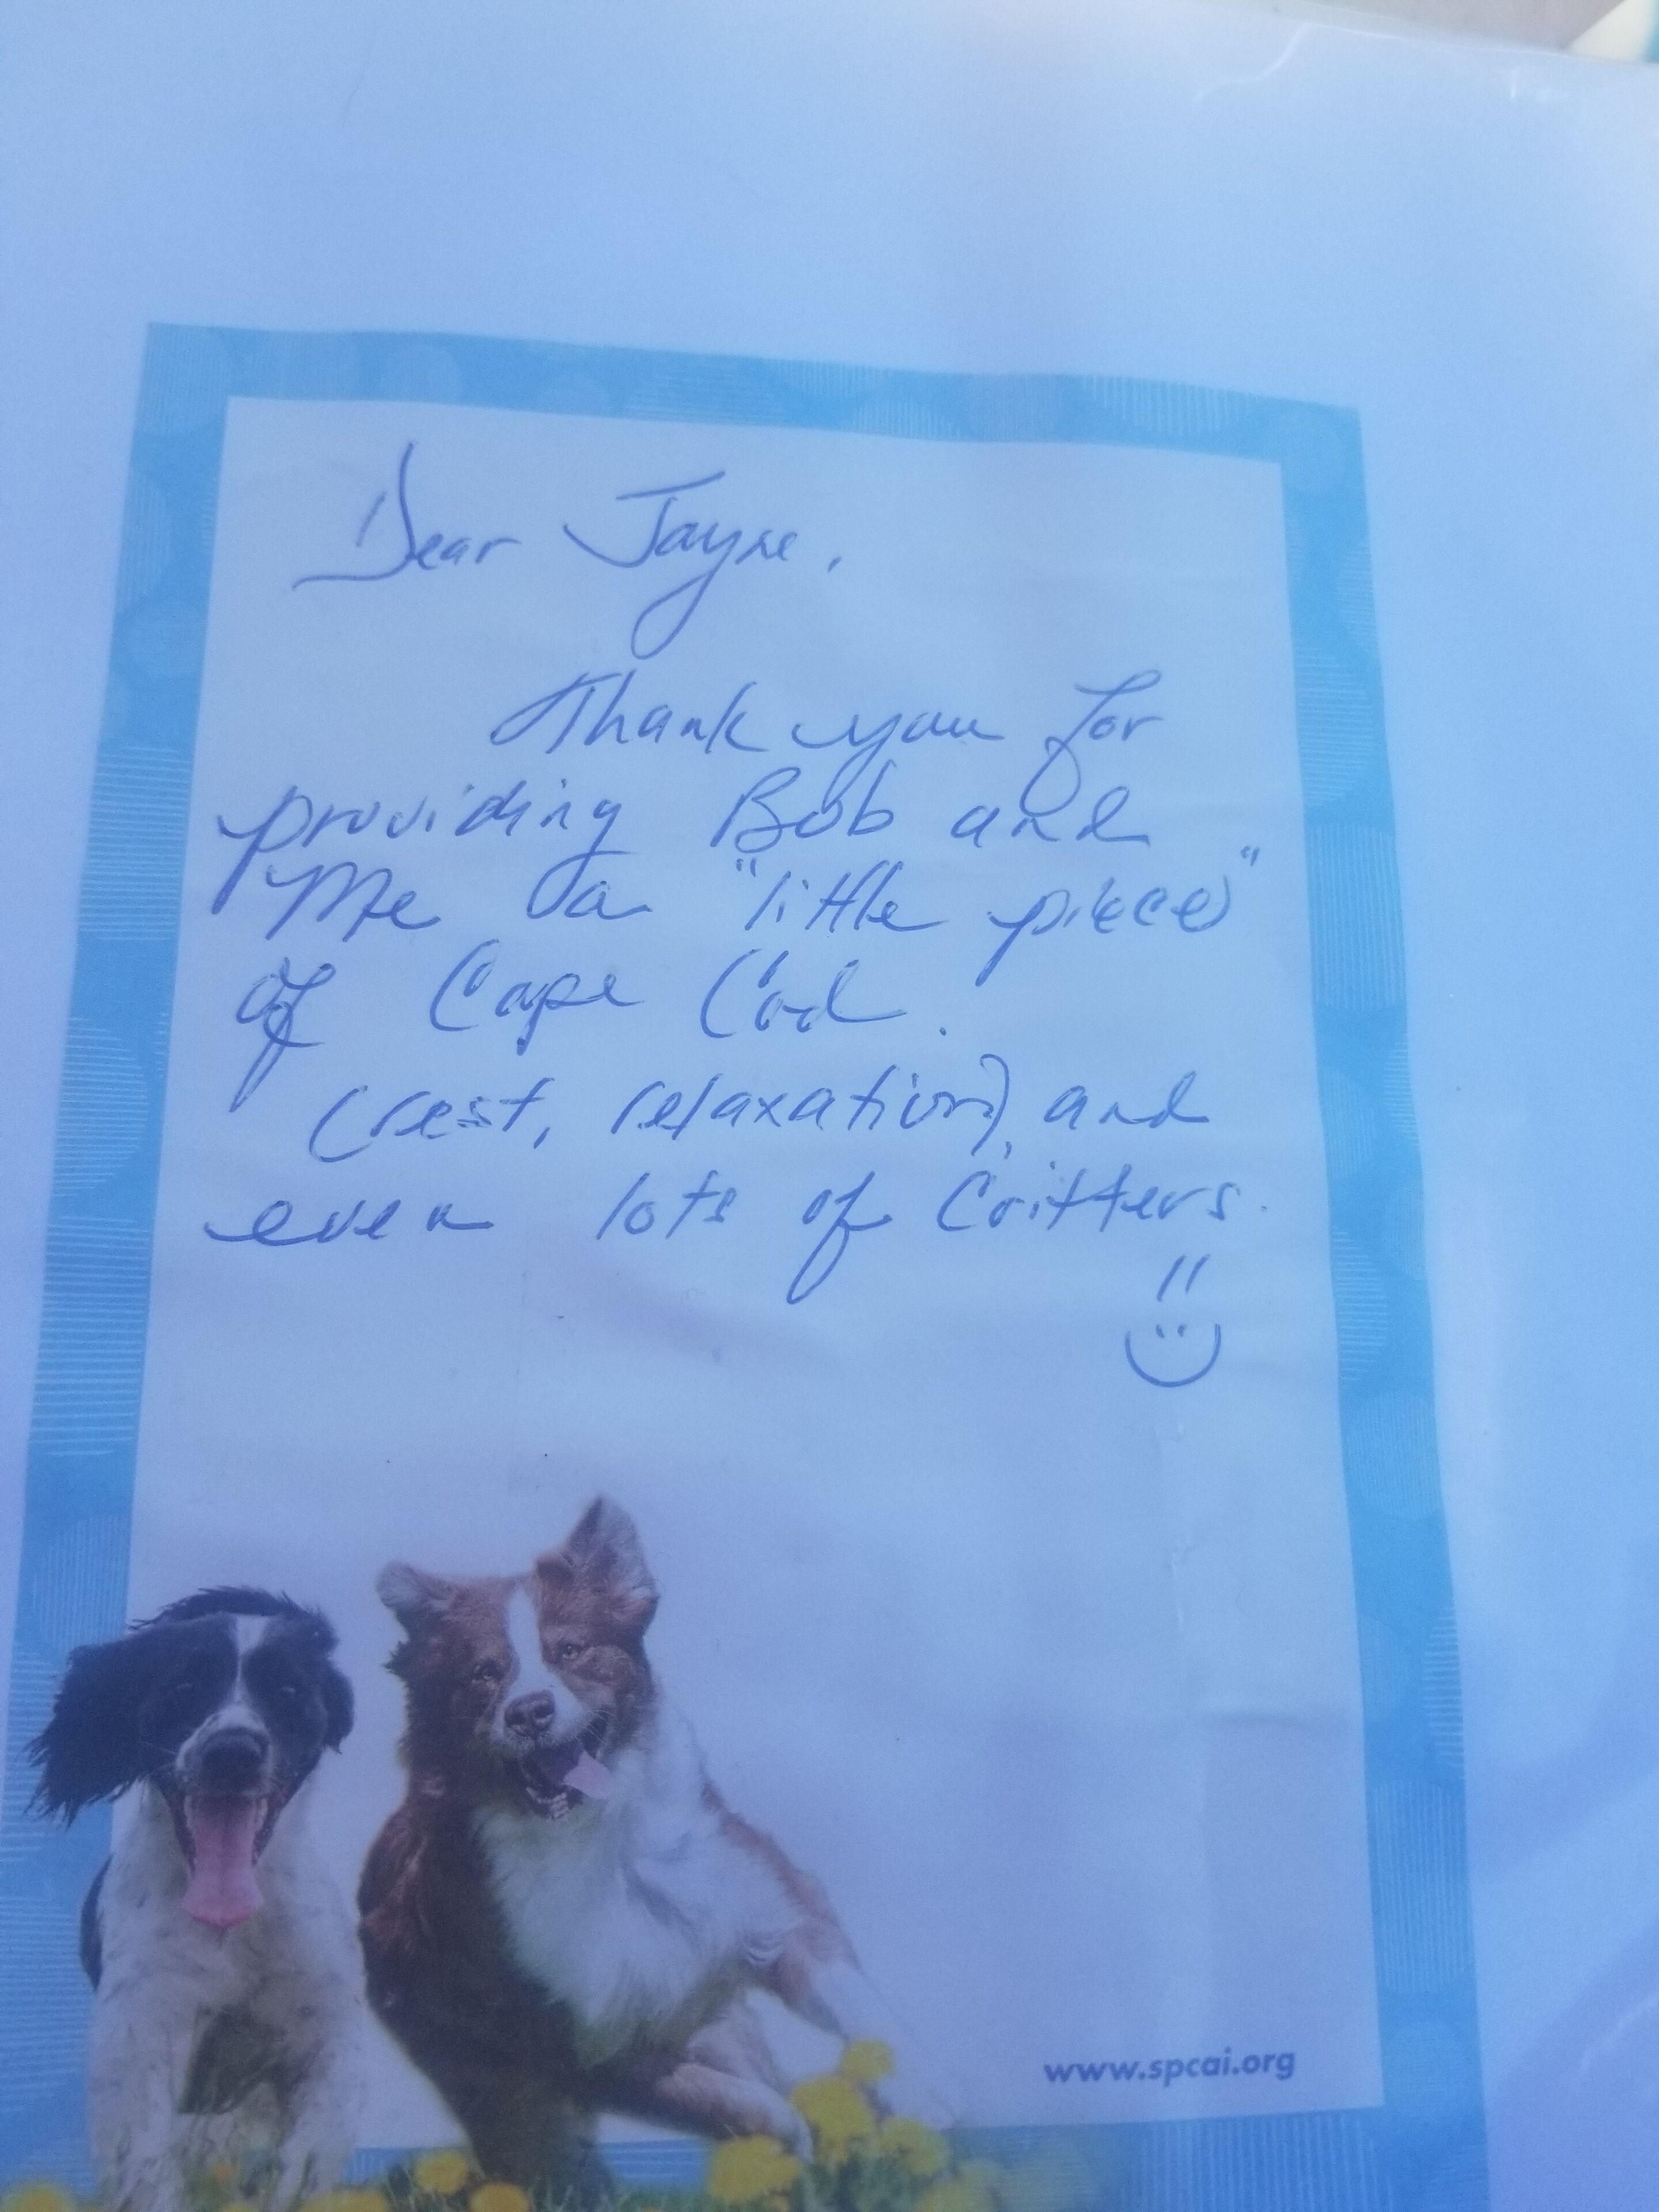 Dear Jayne,
Thank you for
providing Bob and
Me a "little piece"
of Cape Cod.
(rest, relaxation), and
even lots of Critters.
www.spcai.org